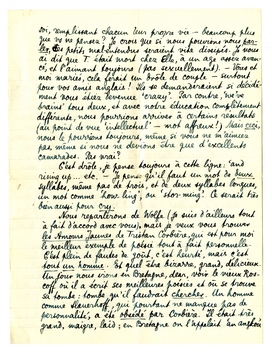 soi, remplissant chacun leur propre vie – beaucoup plus
que vous ne pensez? Je crois que si nous pourrions nous par-
ler, les petits malentendus seraient vite dissipés. Je vous
ai dit que T. était mort chez Elle, à un âge assez avan-
cé, et l'aimant toujours (pas sexuellement). – Vous et
moi mariés, cela ferait un drôle de couple – surtout
pour vos amis anglais! Ils se demanderaient si décidé-
ment vous étiez devenue 'crazy'. Par contre, we've
brains tous deux, et avec notre éducation complètement
différente, nous pourrions arriver à certains résultats
(au point de vue 'intellectuel' – mot affreux!) Mais ceci,
nous le pourrions toujours, même si vous ne m'aimez
pas même si nous ne devons être que d'excellents
camarades. Pas vrai?
C'est drôle, je pense toujours à cette ligne: 'and
rising up... etc. Je pense qu'il faut un mot de deux
syllabes, même pas de trois, et de deux syllabes longues,
un mot comme 'howling', ou 'storming'. Ce serait très
bien aussi pour cry.
Nous reparlerons de Wolfe! Je suis d'ailleurs tout
à fait d'accord avec vous, mais je veux vous prouver
les Amours Jaunes de Tristan Corbière, qui est pour moi
le meilleur exemple de poésie tout à fait personnelle.
C'est plein de fautes de goût, c'est heurté, mais c'est
tout un homme. Et quel être bizarre, grand, délicieux.
Un jour nous irons en Bretagne, dear, voir le vieux Ros-
coff où il a écrit ses meilleures poésies et où se trouve
sa tombe: tombe qu'il faudrait chercher. Un homme
comme Slauerhoff, qui pourtant ne manque pas de
personnalité, a été obsédé par Corbière. Il était très
grand, maigre, laid; en Bretagne on l'appelait 'an ankou'